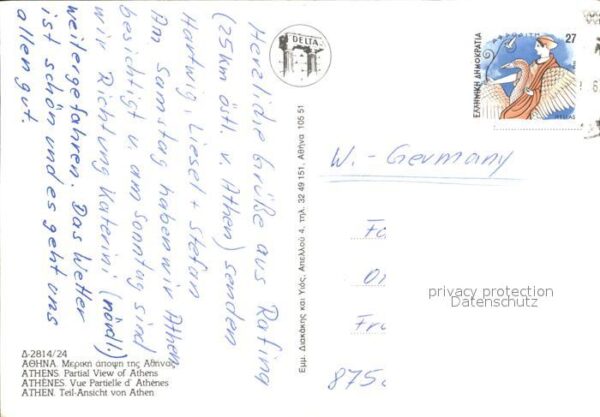 Herzliche Grüße aus Rafina
(25km östl. v. Athen) senden
Hartwig, Liesel + Stefan
Am Samstag haben wir Athen
besichtigt u. am Sonntag sind
wir Richtung Katerini (nördl.)
weitergefahren. Das Wetter
ist schön und es geht uns
allen gut.
DELTA
Εμμ. Διακάκης και Υιός, Απελλού 4, τηλ. 32 49 151, Αθήνα 105 51
ΑΦΡΟΔΙΤΗ
27
ΕΛΛΗΝΙΚΗ ΔΗΜΟΚΡΑΤΙΑ
HELLAS
W.-Germany
Fa
Fr
875
privacy protection
Datenschutz
Δ-2814/24
ΑΘΗΝΑ. Μερική άποψη της Αθήνας
ATHENS. Partial View of Athens
ATHÈNES. Vue Partielle d' Athènes
ATHEN. Teil-Ansicht von Athen